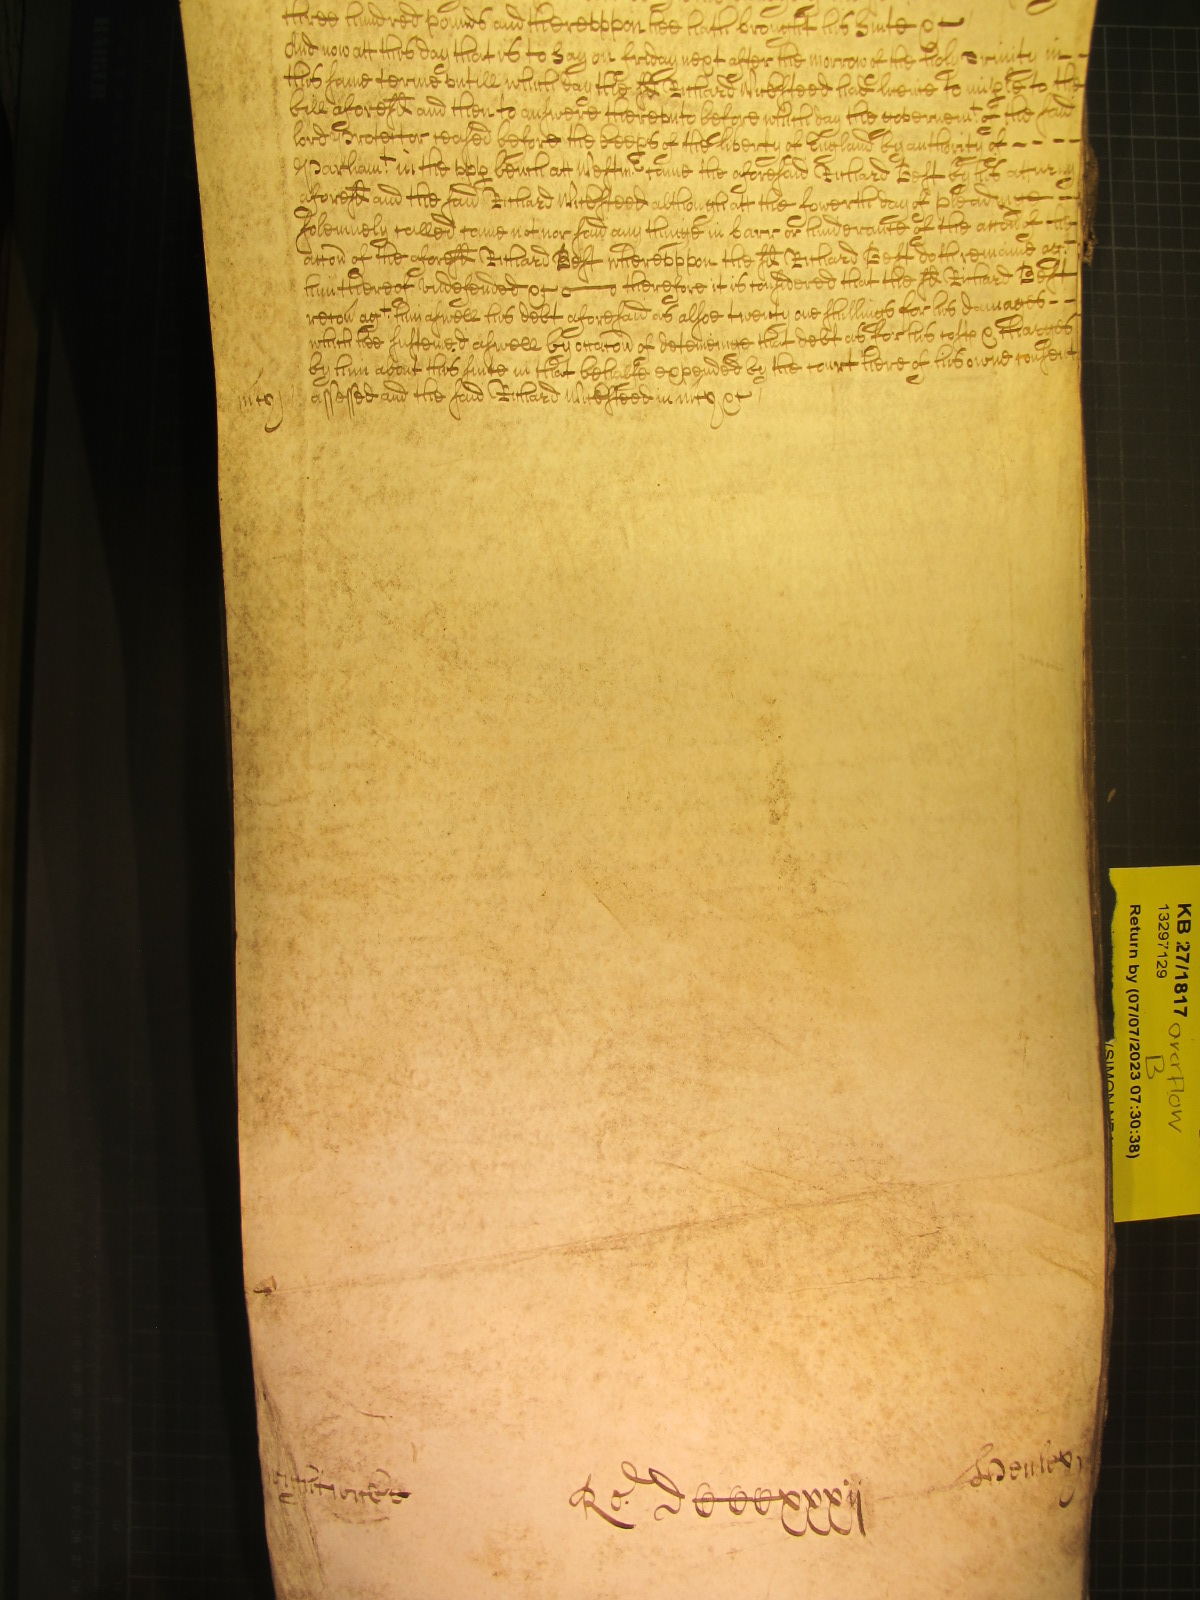 three hundred pounds and thereuppon hee hath brought his Suite &c
And now at this day that is to Say on friday next after the morrow of the Holy Trinity in
this same terme untill which day the sd Richard Wicksteed had leave to imple to the
bill aforesd and then to answere thereunto before which day the governemt of the said
lord Protector ceased before the keeps of the liberty of England by authority of
Parliamt in the upp bench at Westmr came the aforesaid Richard Best by his atturny
aforesd and the said Richard Wicksteed although att the fowerth day of pleadinge
solemnely called came not nor said any thinge in barr or hinderance of the accon of the
accon of the aforesd Richard Best whereuppon the sd Richard Best doth remaine agt
him thereof undefended &c therefore it is considered that the sd Richard Best
recou agt him aswell his debt aforesaid as alsoe twenty one shillings for his damages
which hee susteined aswell by occacon of deteininge that debt as for his costs & charges
by him about this suite in that behalfe expended by the court here of his owne consent
mcy assessed and the said Richard Wicksteed in mcy &c
Ro. D CCCC xxxij
Henley
KB 27/1817
13297129
Return by (07/07/2023 07:30:38)
overflow
B